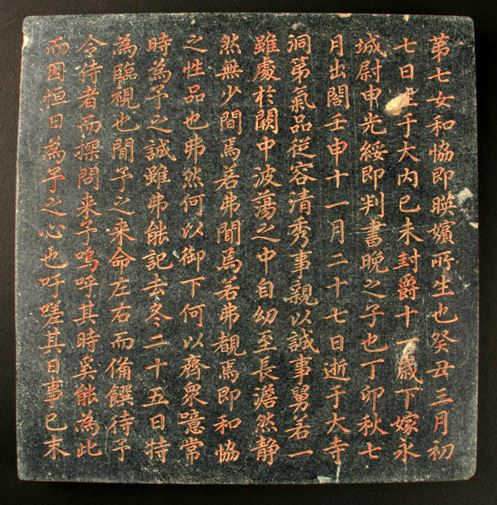 第七女和協即暎嬪所生也癸丑三月初
七日生于大内己未封爵十一歲下嫁永
城尉申光綏即判書晩之子也丁卯秋七
月出閤壬申十一月二十七日逝于大寺
洞第氣品從容清秀事親以誠事舅若一
雖處於闕中波蕩之中自幼至長澹然静
然無少間焉若弗聞焉若弗覩焉即和協
之性品也弗然何以御下何以齊衆噫常
時為予之誠雖弗能記去冬二十五日特
為臨視也聞予之来命左右而備饌待予
令侍者而探問来予嗚呼其時奚能為此
而因恒日為予之心也吁嗟其日事已未